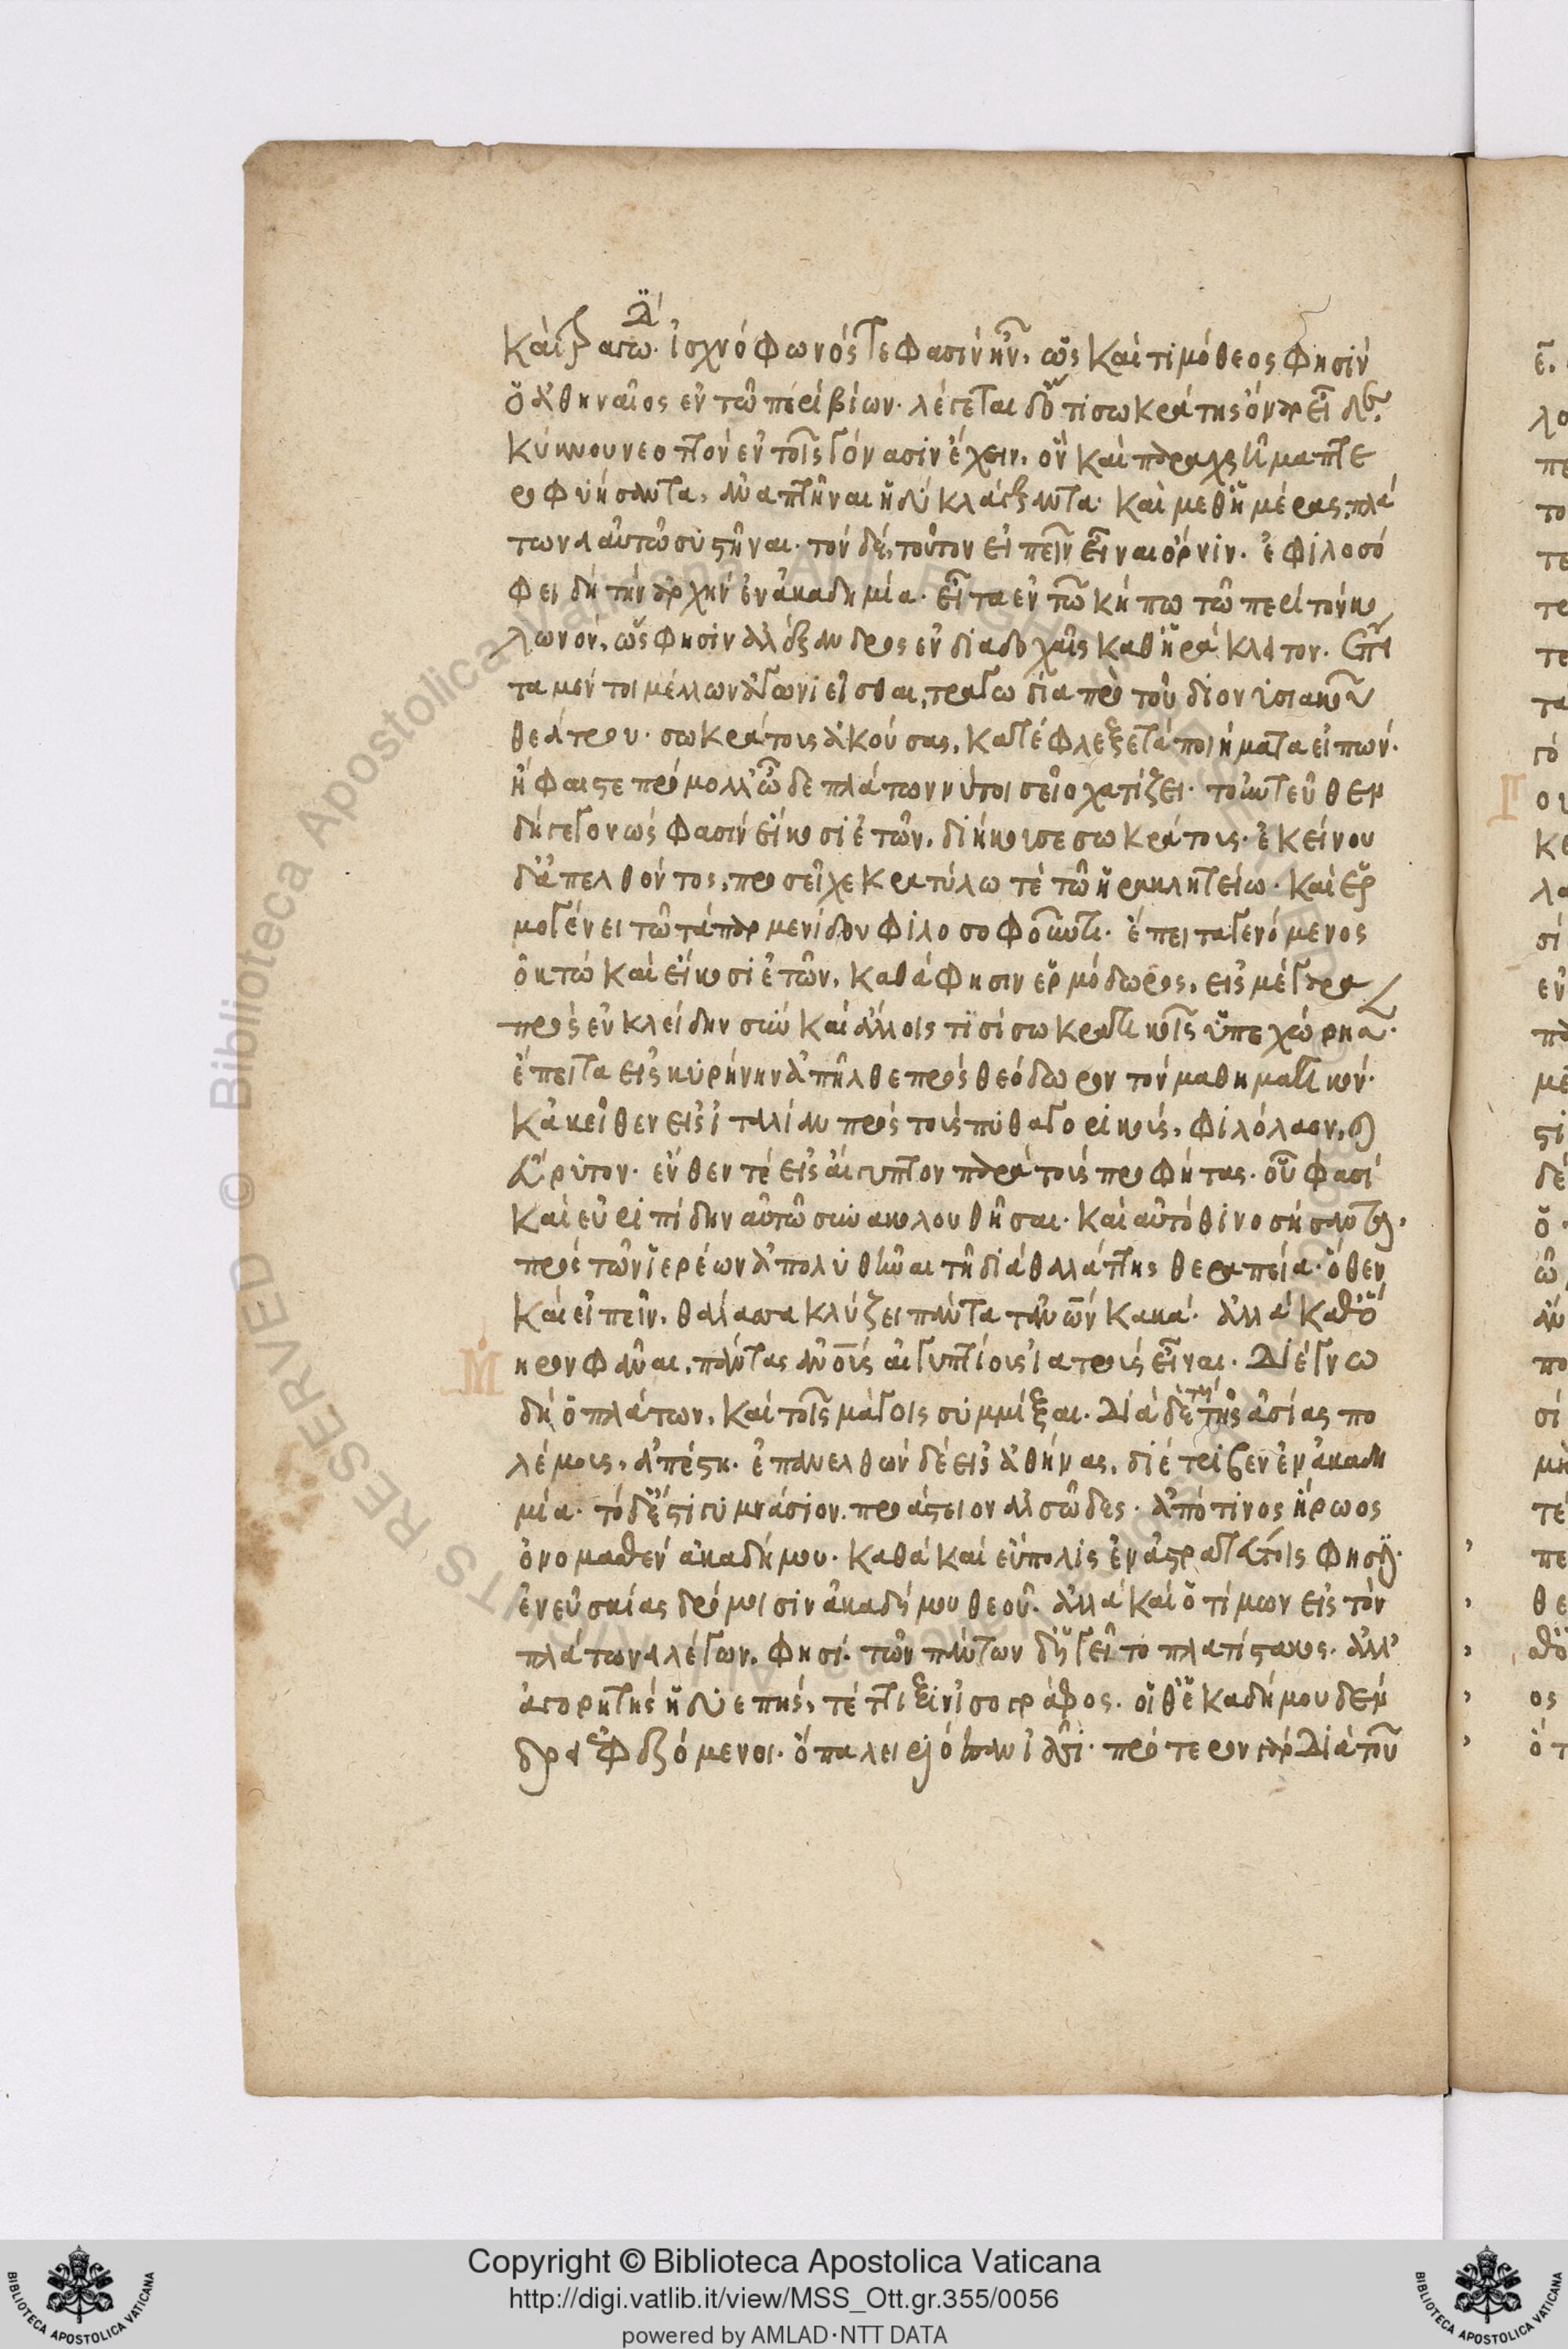 καὶ ᾁσω. ἰσχνόφωνός τε φασὶν ἦν, ὡς καὶ τιμόθεος φησὶν
ὁ ἀθηναῖος ἐν τῶ περὶ βίων. λέγεται δ' ὅτι σωκράτης ὄναρ εἶδε
κύκνου νεοττὸν ἐν τοῖς γόνασιν ἔχειν, ὃν καὶ παραχρῆμα πτε
ροφυήσαντα, ἀναπτῆναι ἡδὺ κλάγξαντα. καὶ μεθ' ἡμέρας, πλά
τωνα αὐτῶ συστῆναι. τὸν δὲ, τοῦτον εἰπεῖν εἶναι ὄρνιν. ἐφιλοσό
φει δὴ τὴν ἀρχὴν ἐν ἀκαδημία. εἶτα ἐν τῶ κήπω τῶ περὶ τὸν κο
λωνόν, ὥς φησιν ἀλέξανδρος ἐν διαδοχαῖς καθ' ἡράκλατον. ἔπει
τα μέν τοι μέλλων ἀγωνιεῖσθαι, τραγωδία πρὸ τοῦ διονυσιακοῦ
θεάτρου. σωκράτους ἀκούσας, κατέφλεξε τὰ ποιήματα εἰπών.
ἥφαιστε πρόμολλ' ὧδε πλάτων νύτοι σεῖο χατίζει. τοὐντεῦθεν
δὴ γεγονὼς φασὶν εἴκοσι ἐτῶν, διήκουσε σωκράτους. ἐκείνου
δ' ἀπελθόντος, προσεῖχε κρατύλω τὲ τῶ ἡρακλητείω. καὶ ἑρ
μογένει τῶ τὰ παρμενίδου φιλοσοφοῦντι. ἔπειτα γενόμενος
ὀκτὼ καὶ εἴκοσι ἐτῶν, καθά φησιν ἑρμόδωρος, εἰς μέγαρα
πρὸς εὐκλείδην σὺν καὶ ἄλλοις τισὶ σωκρατικοῖς ὑπεχώρησεν.
ἔπειτα εἰς κυρήνην ἀπῆλθε πρὸς θεόδωρον τὸν μαθηματικόν.
κἀκεῖθεν εἰς ἰταλίαν πρὸς τοὺς πυθαγορικούς, φιλόλαον, καὶ
εὔρυτον. ἔνθεν τὲ εἰς αἴγυπτον παρὰ τοὺς προφήτας. οὗ φασὶ
καὶ εὐριπίδην αὐτῶ συνακολουθῆσαι. καὶ αὐτόθι νοσήσαντα,
πρὸς τῶν ἱερέων ἀπολυθῆναι τῆ διὰ θαλάττης θεραπεία. ὅθεν
καὶ εἰπεῖν. θάλασσα κλύζει πάντα τἀνθρώπων κακά. ἀλλὰ καθ' ὅ
μηρον φᾶναι, πάντας ἀνθρώπους αἰγυπτίους ἰατροὺς εἶναι. διέγνω
δὴ ὁ πλάτων, καὶ τοῖς μάγοις συμμῖξαι. διὰ δὲ τοὺς τῆς ἀσίας πο
λέμους, ἀπέστη. ἐπανελθὼν δὲ εἰς ἀθήνας, διέτριβεν ἐν ἀκαδη
μία. τὸ δ' ἔστι γυμνάσιον. προάστειον ἀλσῶδες. ἀπό τινος ἥρωος
ὀνομασθὲν ἀκαδήμου. καθὰ καὶ εὔπολις ἐν ἀστρατεύτοις φησίν.
ἐν εὐσκίας δρόμοισιν ἀκαδήμου θεοῦ. ἀλλὰ καὶ ὁ τίμων εἰς τὸν
πλάτωνα λέγων, φησί. τῶν πάντων δ' ἡγεῖτο πλατίστακος. ἀλλ'
ἀγορητὴς ἡδυεπής, τέττιξιν ἰσογράφος. οἵ θ' ἑκαδήμου δέν
δρα ἐφεζόμενοι. ὄπα λειριόεσσαν ἱᾶσι. πρότερον γὰρ διὰ τοῦ
Copyright © Biblioteca Apostolica Vaticana
http://digi.vatlib.it/view/MSS_Ott.gr.355/0056
powered by AMLAD·NTT DATA